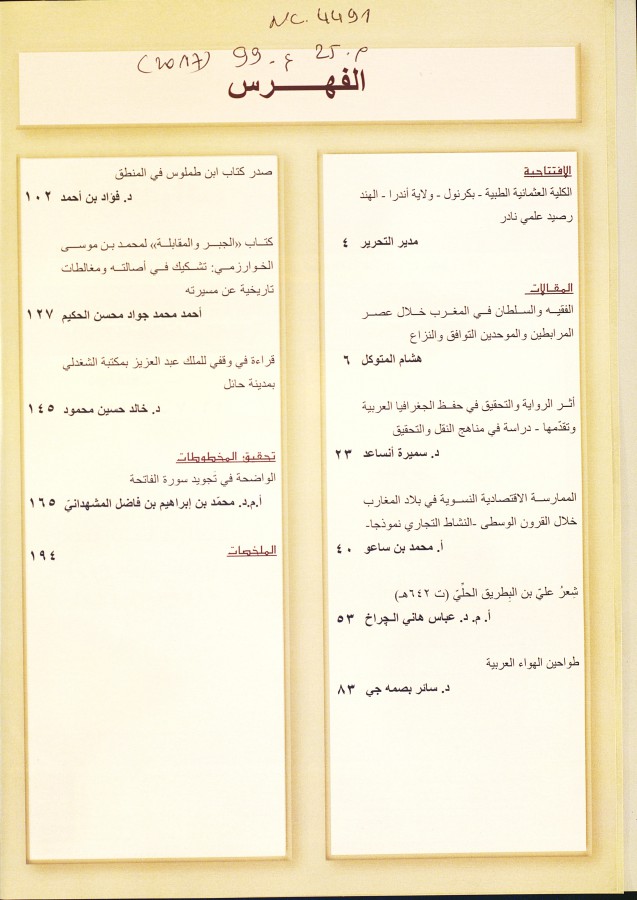 NC. 4491
م. 25 ع. 99 (2017)
الفهـــــرس
الافتتاحية
الكلية العثمانية الطبية - بكرنول - ولاية أندرا - الهند
رصيد علمي نادر
مدير التحرير ٤
المقالات
الفقيـه والسـلطان فـي المغـرب خـلال عصـر
المرابطين والموحدين التوافق والنزاع
هشام المتوكل ٦
أثـر الرواية والتحقيق في حفـظ الجغرافيا العربية
وتقدّمها - دراسة في مناهج النقل والتحقيق
د. سميرة أنساعد ٢٣
الممارسـة الاقتصادية النسـوية في بلاد المغارب
خلال القرون الوسطى -النشاط التجاري نموذجا-
أ. محمد بن ساعو ٤٠
شِعرُ عليّ بن البِطريق الحلّيّ (ت ٦٤٢هـ)
أ. م. د. عباس هاني الـچراخ ٥٣
طواحين الهواء العربية
د. سائر بصمه جي ٨٣
صدر كتاب ابن طملوس في المنطق
د. فؤاد بن أحمد ١٠٢
كتـاب «الجبـر والمقابلـة» لمحمـد بـن موسـى
الخـوارزمـي: تشـكيك فـي أصالتـه ومغالطات
تاريخية عن مسيرته
أحمد محمد جواد محسن الحكيم ١٢٧
قراءة في وقفي للملك عبد العزيز بمكتبة الشغدلي
بمدينة حائل
د. خالد حسين محمود ١٤٥
تحقيق المخطوطات
الواضحة في تَجويد سورة الفاتحة
أ.م.د. محمّد بن إبراهيم بن فاضل المشهدانيّ ١٦٥
الملخصات ١٩٤